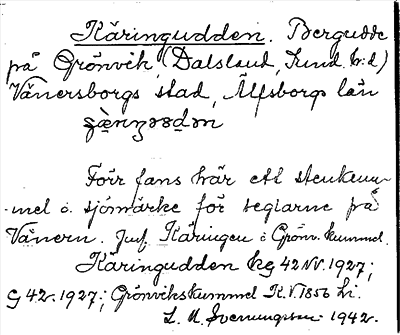 Käringudden. Bergudde
på Grönvik, (Dalsland, Sund. h:d)
Vänersborgs stad, Älfsborgs län
Förr fans här ett stenkum-
mel o. sjömärke för seglarne på
Vänern. Jmf. Käringen i Grönv. kummel.
Käringudden Ek 42 NV. 1927;
G 42. 1927; Grönvikskummel K.V. 1856 Li.
L. M. Svenungsson 1942.